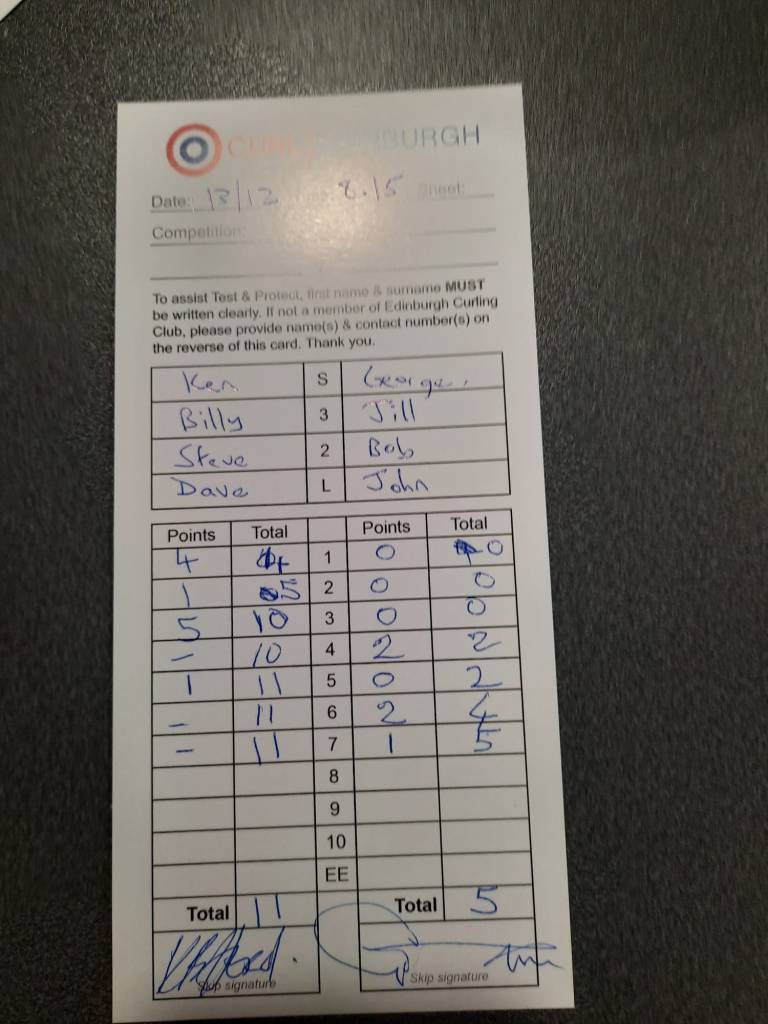 CURLING EDINBURGH
Date: 13/12 8.15 Sheet:
Competition:
To assist Test & Protect, first name & surname MUST
be written clearly. If not a member of Edinburgh Curling
Club, please provide name(s) & contact number(s) on
the reverse of this card. Thank you.
Ken S George.
Billy 3 Jill
Steve 2 Bob
Dave L John
Points Total Points Total
4 4 1 0 0
1 5 2 0 0
5 10 3 0 0
- 10 4 2 2
1 11 5 0 2
- 11 6 2 4
- 11 7 1 5
8
9
10
EE
Total 11 Total 5
Skip signature Skip signature